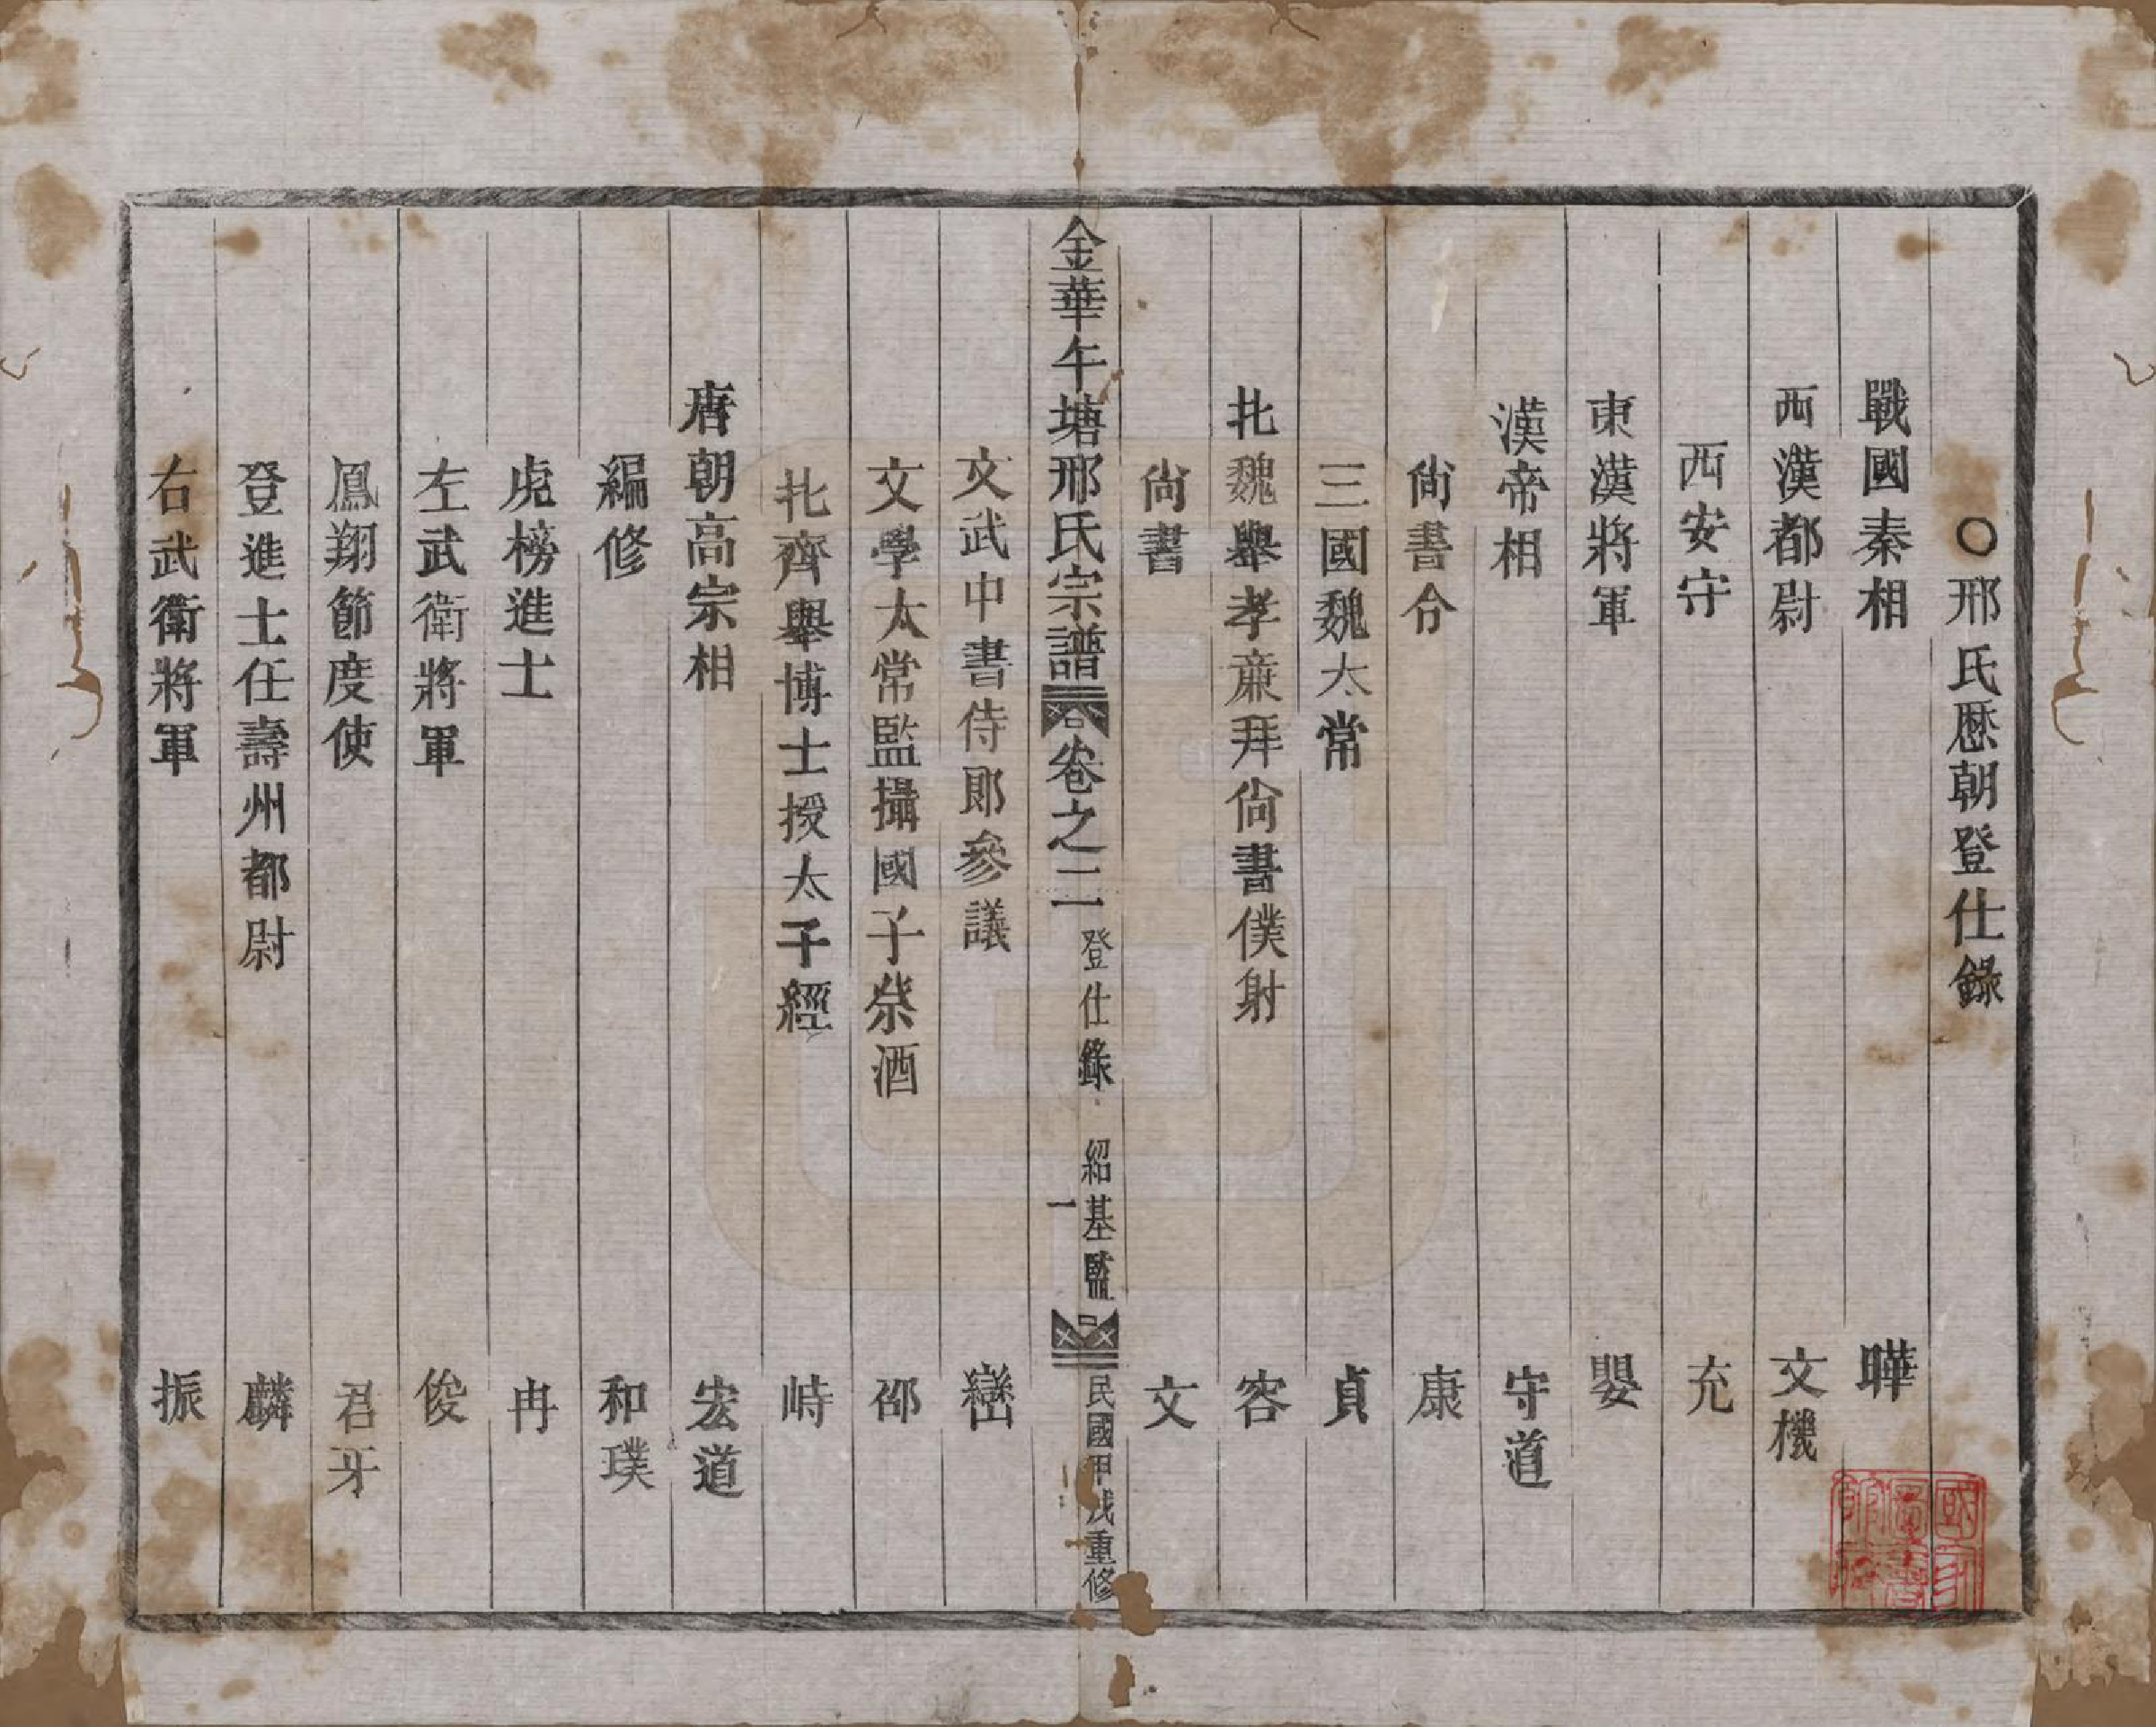 〇邢氏歷朝登仕錄
戰國秦相 曄
西漢都尉 文機
西安守 充
東漢將軍 嬰
漢帝相 守道
尚書令 康
三國魏太常 貞
北魏舉孝廉拜尚書僕射 容
尚書 文
金華午塘邢氏宗譜 卷之二 登仕錄 一 紹基監 民國甲戌重修
文武中書侍郎參議 巒
文學太常監攝國子祭酒 邵
北齊舉博士授太子經 峙
唐朝高宗相 宏道
編修 和璞
虎榜進士 冉
左武衛將軍 俊
鳳翔節度使 君牙
登進士任壽州都尉 麟
右武衛將軍 振